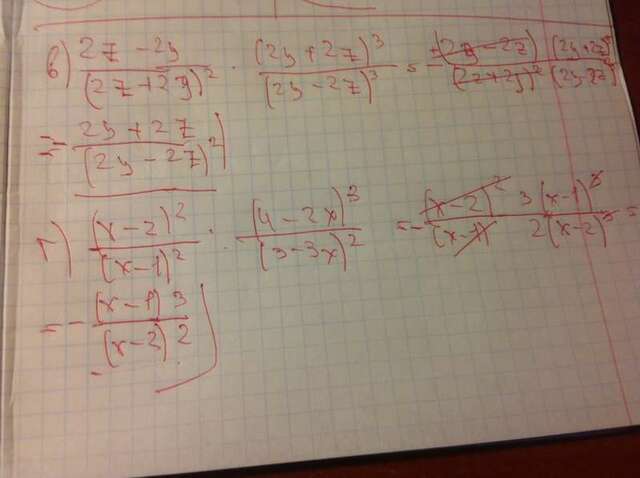 в) (2z - 2y)/(2z + 2y)² · (2y + 2z)³/(2y - 2z)³ = - (2y - 2z)/(2z + 2y)² (2y + 2z)³/(2y - 2z)³
= - (2y + 2z)/(2y - 2z)²
г) (x - 2)²/(x - 1)² : (4 - 2x)³/(3 - 3x)² = - (x - 2)² 3(x - 1)²/(x - 1)² 2(x - 2)³ =
= - (x - 1) 3/(x - 2) 2